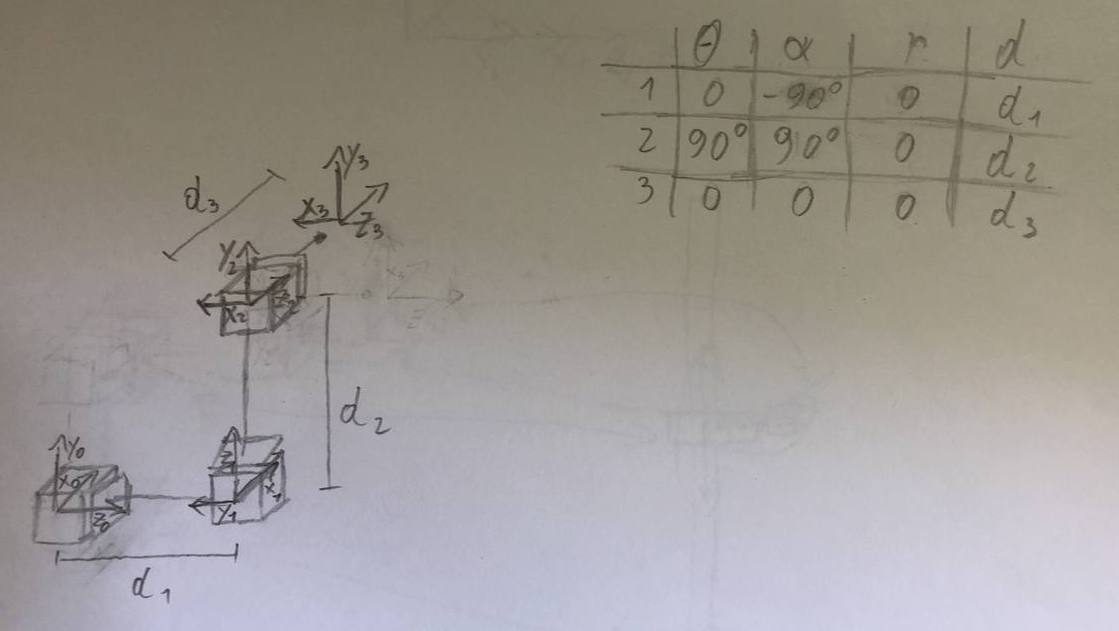 θ α r d
1 0 -90° 0 d₁
2 90° 90° 0 d₂
3 0 0 0 d₃
d₃
Y₃
X₃
Z₃
Y₂
X₂
Z₂
d₂
Y₀
X₀
Z₀
Z₁
X₁
Y₁
d₁